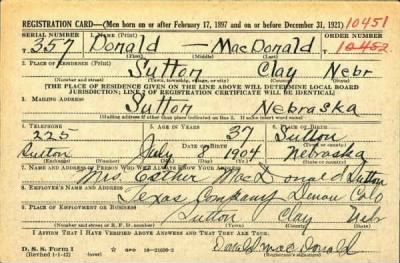 REGISTRATION CARD—(Men born on or after February 17, 1897 and on or before December 31, 1921) 10451
SERIAL NUMBER 1. NAME (Print) ORDER NUMBER
T 357 Donald — MacDonald 10452
(First) (Middle) (Last)
2. PLACE OF RESIDENCE (Print)
Sutton Clay Nebr
(Number and street) (Town, township, village, or city) (County) (State)
[THE PLACE OF RESIDENCE GIVEN ON THE LINE ABOVE WILL DETERMINE LOCAL BOARD
JURISDICTION; LINE 2 OF REGISTRATION CERTIFICATE WILL BE IDENTICAL]
3. MAILING ADDRESS
Sutton Nebraska
[Mailing address if other than place indicated on line 2. If same insert word same]
4. TELEPHONE 5. AGE IN YEARS 6. PLACE OF BIRTH
225 37 Sutton
DATE OF BIRTH
Sutton July 8 1904 Nebraska
(Exchange) (Number) (Mo.) (Day) (Yr.) (State or country)
7. NAME AND ADDRESS OF PERSON WHO WILL ALWAYS KNOW YOUR ADDRESS
Mrs. Esther MacDonald Sutton
8. EMPLOYER'S NAME AND ADDRESS
Texas Company Denver Colo
9. PLACE OF EMPLOYMENT OR BUSINESS
Sutton Clay Neb
(Number and street or R. F. D. number) (Town) (County) (State)
I AFFIRM THAT I HAVE VERIFIED ABOVE ANSWERS AND THAT THEY ARE TRUE.
D. S. S. Form 1
(Revised 1-1-42) Donald MacDonald
(Registrant's signature)